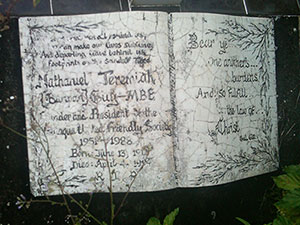 Lives of great men all remind us,
we can make our lives sublime,
And departing, leave behind us,
Footprints on the sands of Time
Nathaniel Jeremiah
Guy - MBE
Founder and President of the
Friendly Society
1954 - 1988
Born: June 13,
Died: April
Bear ye
one another's
burdens
And so fulfill
the law of
Christ